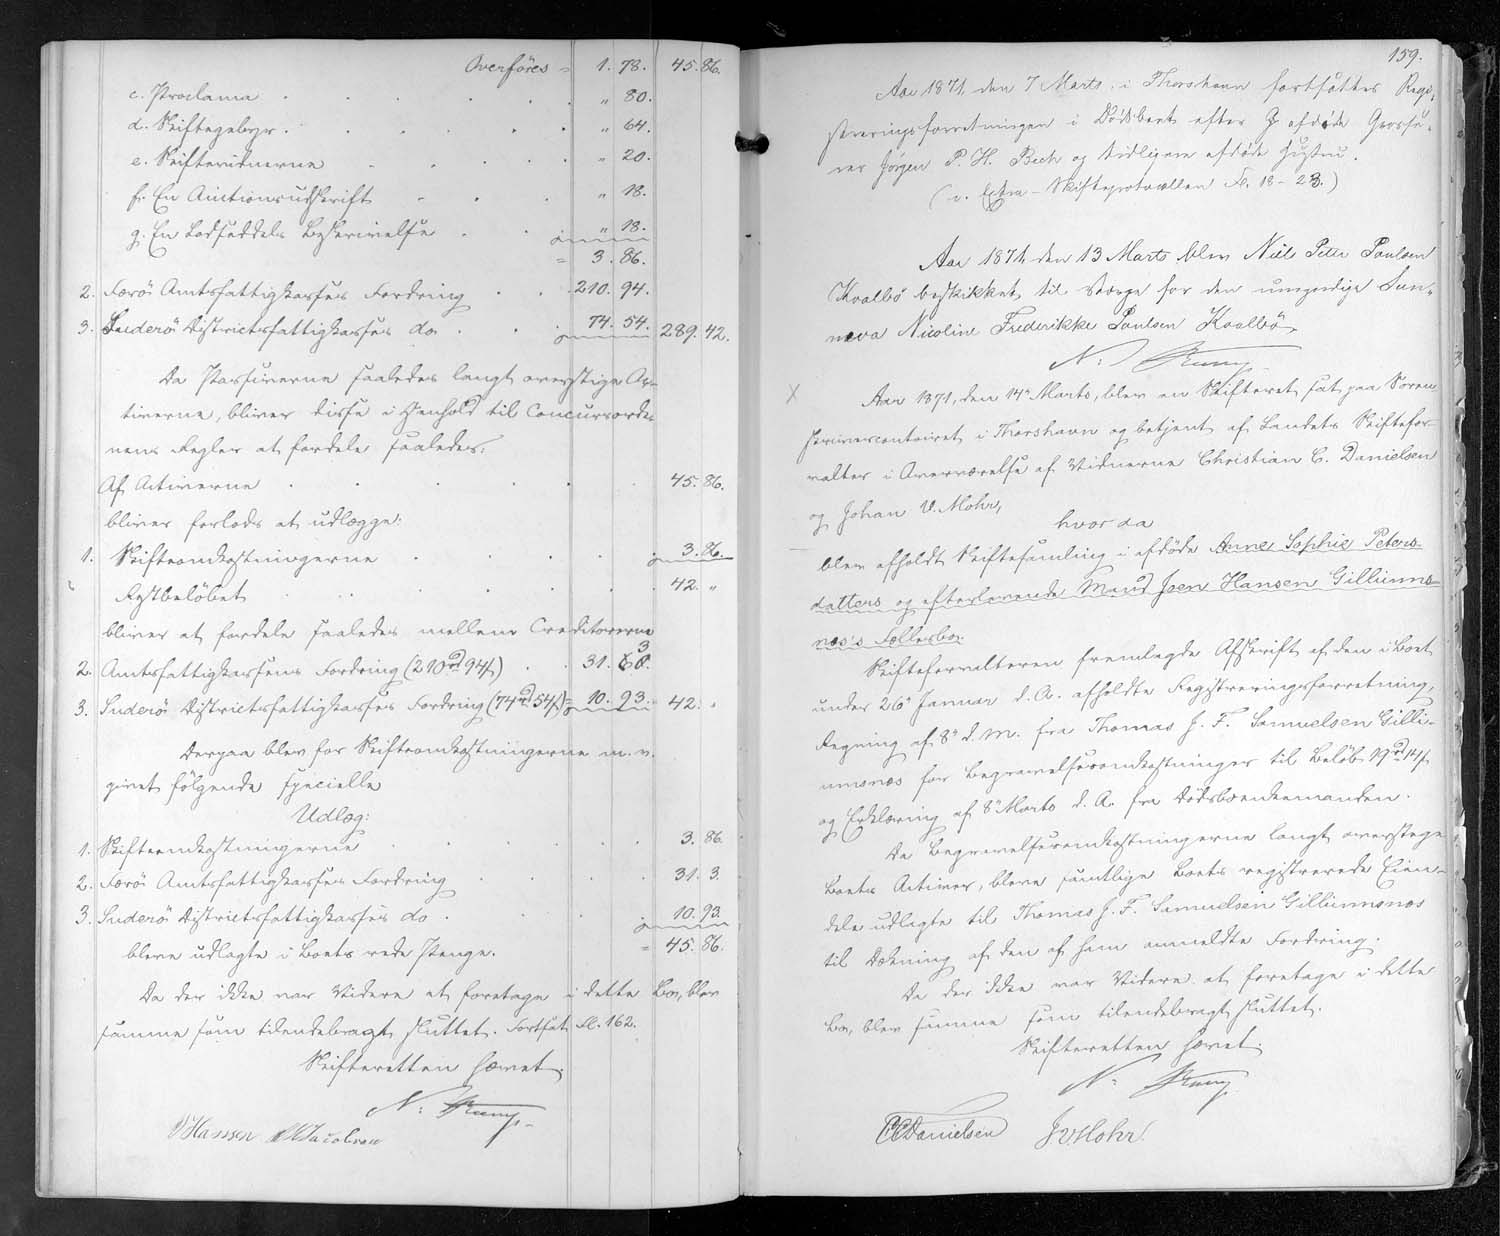 Overføres = 1. 78. 45. 86.
c. Proclama . . . . . „ 80.
d. Skiftegebyr . . . . . „ 64.
e. Skiftevidnerne . . . . „ 20.
f. En Auctionsudskrift . . . „ 18.
g. En Lodseddels Beskrivelse . . „ 18.
= 3. 86.
2. Færø Amtsfattigkasses Fordring . . 210. 94.
3. Suderø Districtsfattigkasses do . . . 74. 54. 289. 42.
Da Passiverne saaledes langt overstige Ac-
tiverne, bliver disse i Henhold til Concursorde-
nens Regler at fordele saaledes:
Af Activerne . . . . . 45. 86.
bliver forlods at udlægge:
1. Skifteomkostningerne . . . . 3. 86.
Restbeløbet . . . . . 42. „
bliver at fordele saaledes mellem Creditorerne
2. Amtsfattigkassens Fordring (210 rd 94 s) . . 31. 3.
3. Suderø Districtsfattigkasses Fordring (74 rd 54 s) = 10. 93. 42. „
Derpaa blev for Skifteomkostningerne m. v.
givet følgende specielle
Udlæg:
1. Skifteomkostningerne . . . . 3. 86.
2. Færø Amtsfattigkasses Fordring . . . 31. 3.
3. Suderø Districtsfattigkasses do . . . 10. 93.
bleve udlagte i Boets rede Penge. = 45. 86.
Da der ikke var Videre at foretage i dette Bo, blev
samme som tilendebragt sluttet. Fortsat Fl. 162.
Skifteretten hævet.
N:
Hansen Jacobsen
159.
Aar 1871, den 7 Marts, i Thorshavn fortsattes Regi-
streringsforretningen i Dødsboet efter afdøde Grosse-
rer Jørgen P. H. Bech og tidligere afdøde Hustru.
(v. Extra-Skifteprotocollen Fl. 18-23.)
Aar 1871, den 13 Marts blev Niels Peter Poulsen
Kvalbø beskikket til Værge for den umyndige Sun-
neva Nicoline Frederikke Poulsen Kvalbø.
N:
X Aar 1871, den 14de Marts, blev en Skifteret sat paa Soren
skrivercontoiret i Thorshavn og betjent af Landets Skiftefor-
valter i Overværelse af Vidnerne Christian C. Danielsen
og Johan V. Mohr,
hvorda
blev afholdt Skiftesamling i afdøde Anne Sophie Peters-
datters og efterlevende Mand Joen Hansen Gilliumns-
næs's Fællesbo.
Skifteforvalteren fremlagde Afskrift af den i Boet
under 26de Januar d. A. afholdte Registreringsforretning,
Regning af 8de d. M. fra Thomas J. F. Samuelsen Gilli-
umsnæs for Begravelsesomkostninger til Beløb 19 rd 14 s
og Erklæring af 8de Marts d. A. fra Dødsboendemanden.
Da Begravelsesomkostningerne langt overstege
Boets Activer, bleve samtlige Boets registrerede Eien-
dele udlagte til Thomas J. F. Samuelsen Gilliumnsnæs
til Dækning af den af ham anmeldte Fordring.
Da der ikke var Videre at foretage i dette
Bo, blev samme som tilendebragt sluttet.
Skifteretten hævet.
N:
CCDanielsen JVMohr.